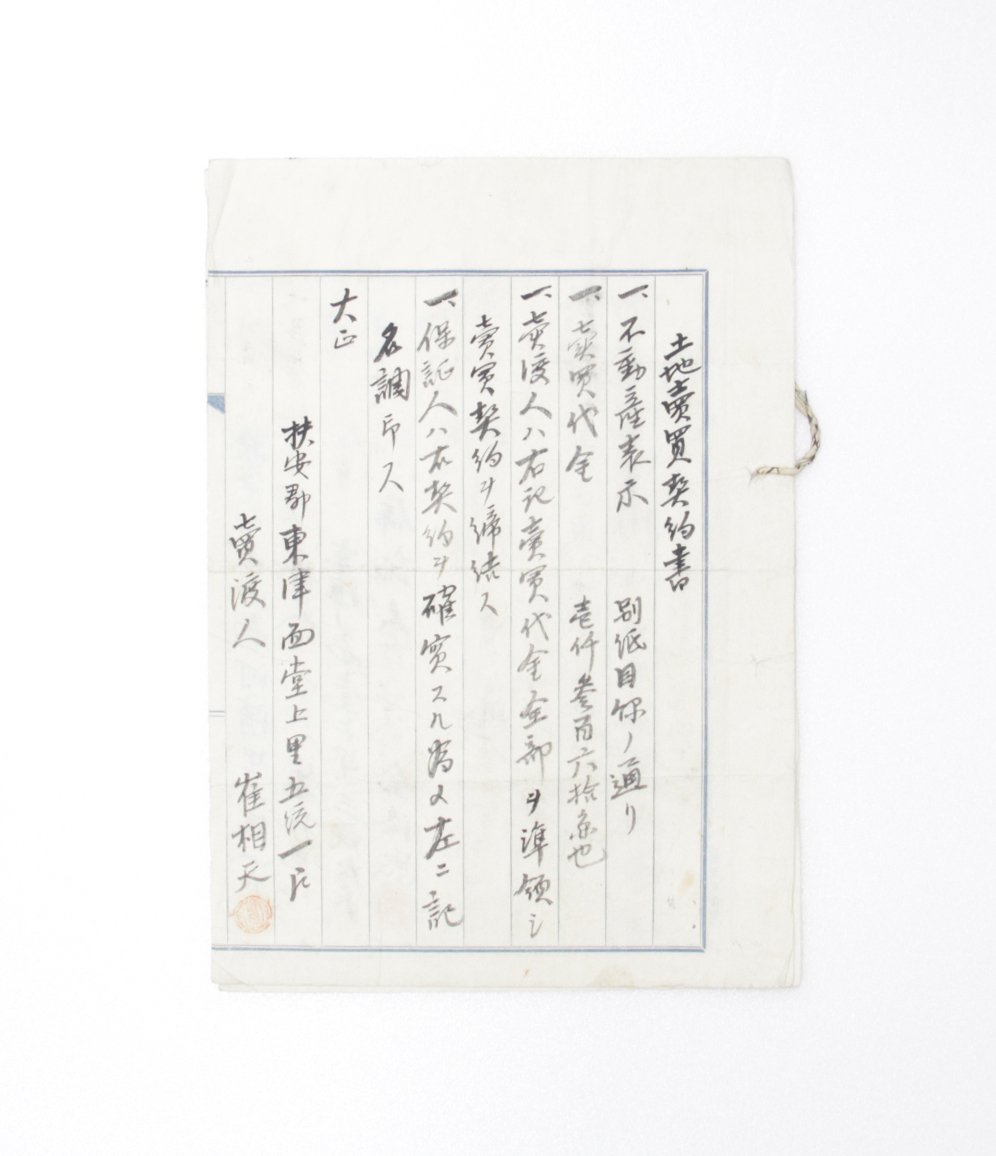 土地賣買契約書
一、不動産表示　別紙目錄ノ通リ
一、賣買代金　壱仟参百六拾余也
一、賣渡人ハ右記賣買代金全部ヲ準領シ
賣買契約ヲ締結ス
一、保証人ハ右契約ヲ確実スル為メ左ニ記
名調印ス
大正
扶安郡東津面堂上里五統一戶
賣渡人　崔相天